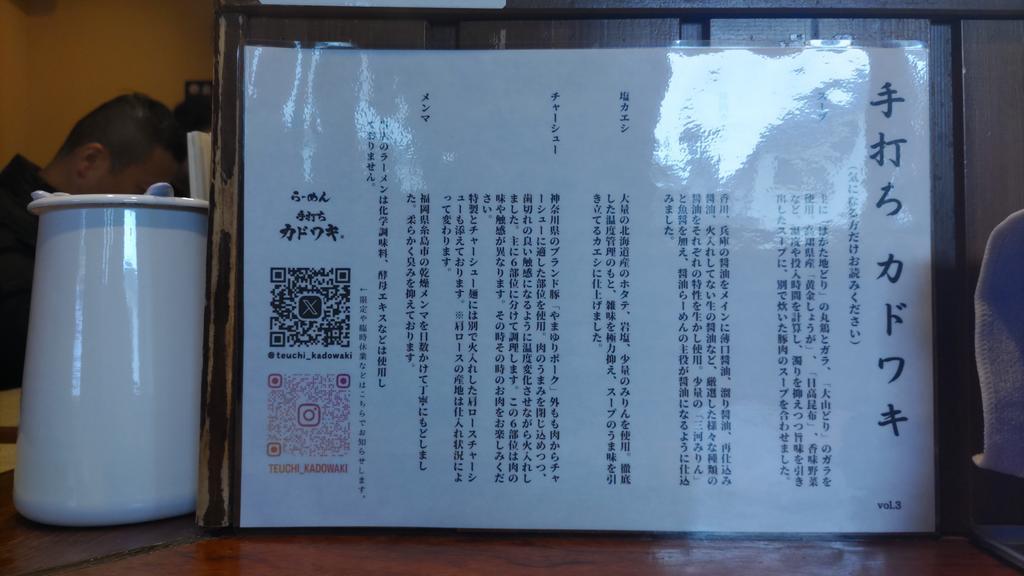 手打ち カドワキ
(気になる方だけお読みください)
スープ
主に「ぼかた地どり」の丸鶏とガラ、「大山どり」のガラを
使用。高知県産「黄金しょうが」、「日高昆布」、香味野菜
など、温度や投入時間を計算し、濁りを抑えつつ旨味を引き
出したスープに、別で炊いた豚肉のスープを合わせました。
香川、兵庫の醤油をメインに薄口醤油、溜り醤油、再仕込み
醤油、火入れしてない生の醤油など、厳選した様々な種類の
醤油をそれぞれの特性を生かし使用。少量の「三河みりん」
と魚醤を加え、醤油らーめんの主役が醤油になるように仕込
みました。
塩カエシ
大量の北海道産のホタテ、岩塩、少量のみりんを使用。徹底
した温度管理のもと、雑味を極力抑え、スープのうま味を引
き立てるカエシに仕上げました。
チャーシュー
神奈川県のブランド豚「やまゆりポーク」外もも肉からチャ
ーシューに適した部位を使用。肉のうまみを閉じ込めつつ、
歯切れの良い触感になるように温度変化させながら火入れし
ました。主に6部位に分けて調理します。この6部位は肉の
味や触感が異なります。その時その時のお肉をお楽しみくだ
さい。
特製とチャーシュー麺には別で火入れした肩ロースチャーシ
ューも添えております。※肩ロースの産地は仕入れ状況によ
って変わります。
メンマ
福岡県糸島市の乾燥メンマを日数かけて丁寧にもどしまし
た。柔らかく臭みを抑えております。
のラーメンは化学調味料、酵母エキスなどは使用し
ておりません。
←限定や臨時休業などはこちらでお知らせします。
らーめん
手打ち
カドワキ。
@teuchi_kadowaki
TEUCHI_KADOWAKI
vol.3